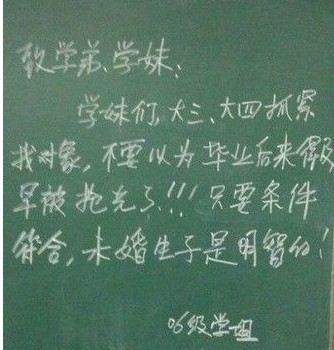 致学弟、学妹:
学妹们,大三、大四抓紧
找对象,不要以为毕业后来得及
早被抢光了!!!只要条件
符合,未婚生子是明智的!
06级学姐